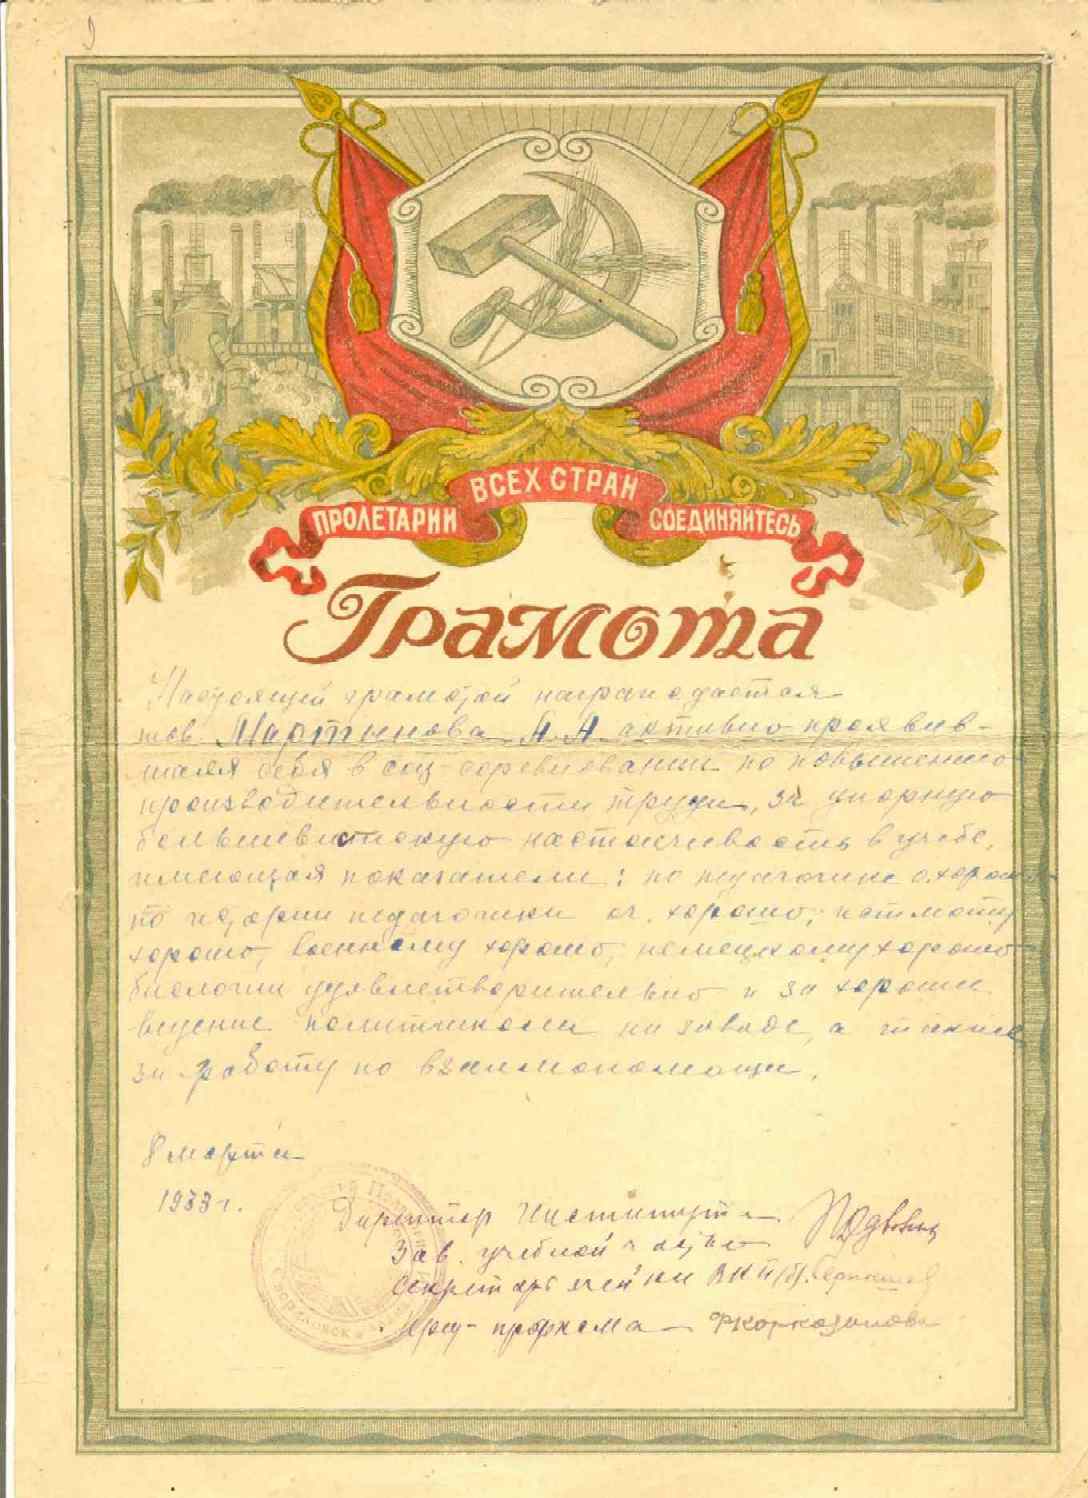 ВСЕХ СТРАН
ПРОЛЕТАРИИ СОЕДИНЯЙТЕСЬ
Грамота
Настоящей грамотой награждается
тов. Мартынова А. А. активно проявив-
шаяся себя в соц-соревновании по повышению
производительности труда, за упорную
большевистскую настойчивость в учебе,
имеющая показатели: по педагогике о. хорошо
по истории педагогики оч. хорошо,
хорошо, военному хорошо, немецкому хорошо
биологии удовлетворительно и за хорошее
ведение политшколы на заводе, а также
за работу по взаимопомощи.
8 марта
1933 г.
Директор Института
Зав. учебной частью
Секретарь ячейки ВКП(б).
профкома